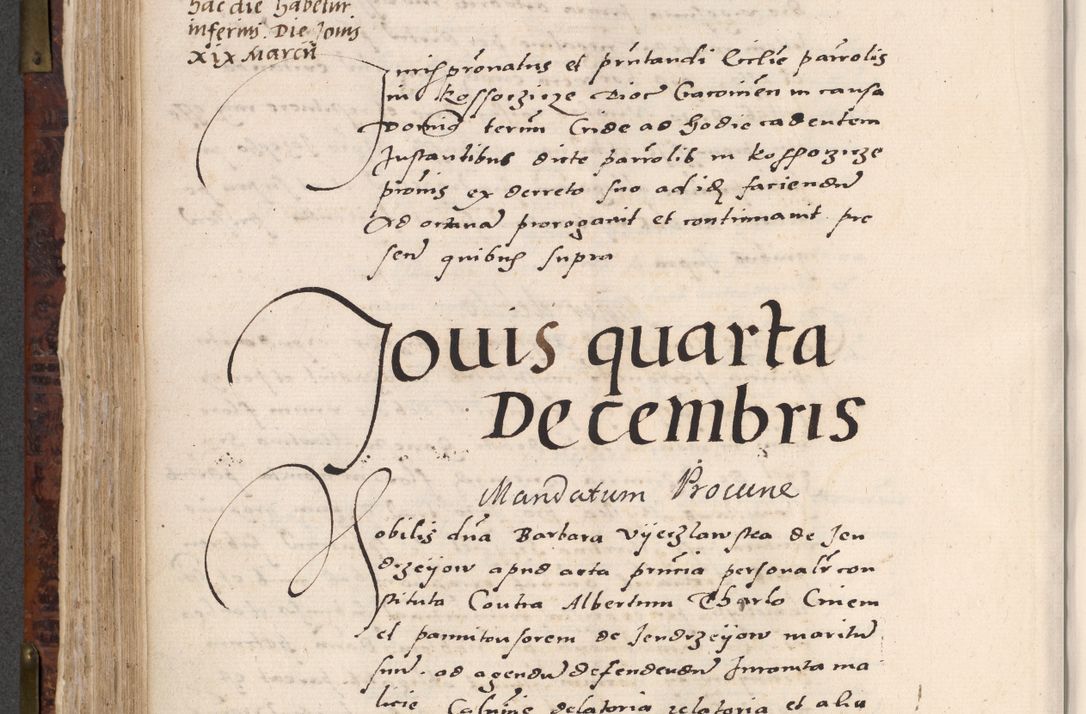 hac die habetur
inferius. Die Jovis
XIX Marcii
Jurispronatus et pntandi Ecclie parrolis
in Kossorzicze Dioc Cracovien in causa
Dominis termn Cride ad hodie cadentem
Instantibus dicte parrolis in Kossorzicze
pronis ex decreto suo ad id faciendu
Ad octava prorogavit et continuavit pre
sen quibus supra
Jouis quarta
Decembris
Mandatum Procune
Nobilis dna Barbara Vyerzlawska de Jen
drzeyow apud acta pnncia personalr con
stituta Contra Albertum Tharlo Civem
et pannitonsorem de Jendrzeyow maritu
suu. ad agendu defendendu Juramta ma
licie Calunie delatoria relatoria et aliu